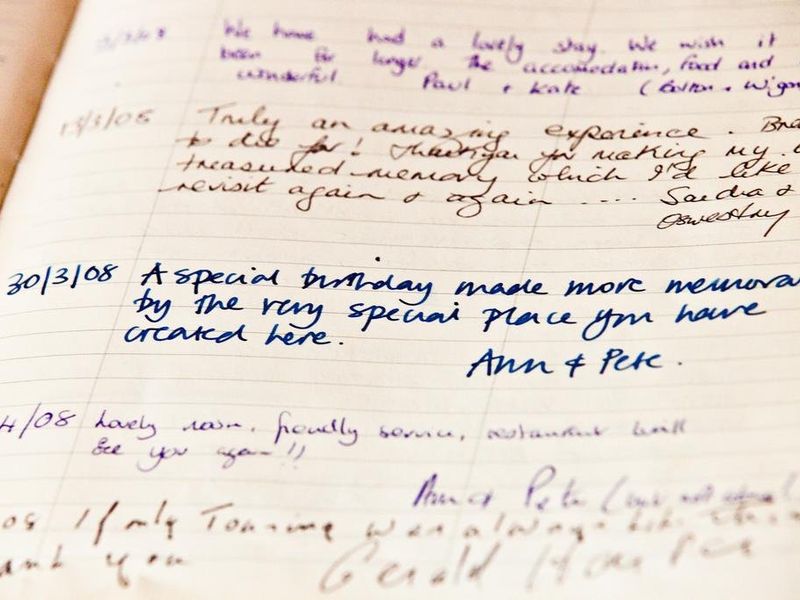 We have had a lovely stay. We wish it
been for longer. The accomodation, food and
wonderful Paul + Kate (Bolton + Wigan
13/3/08 Truly an amazing experience.
to die for! Thankyou for making my
treasured memory which I'd like
revisit again & again .... &
Oswestry
30/3/08 A special birthday made more memora
by the very special place you have
created here.
Ann & Pete.
4/08 Lovely room, friendly service, restaurant
See you again!!
Ann & Pete (not
08 If only Touring was always like this
ank you Gerald